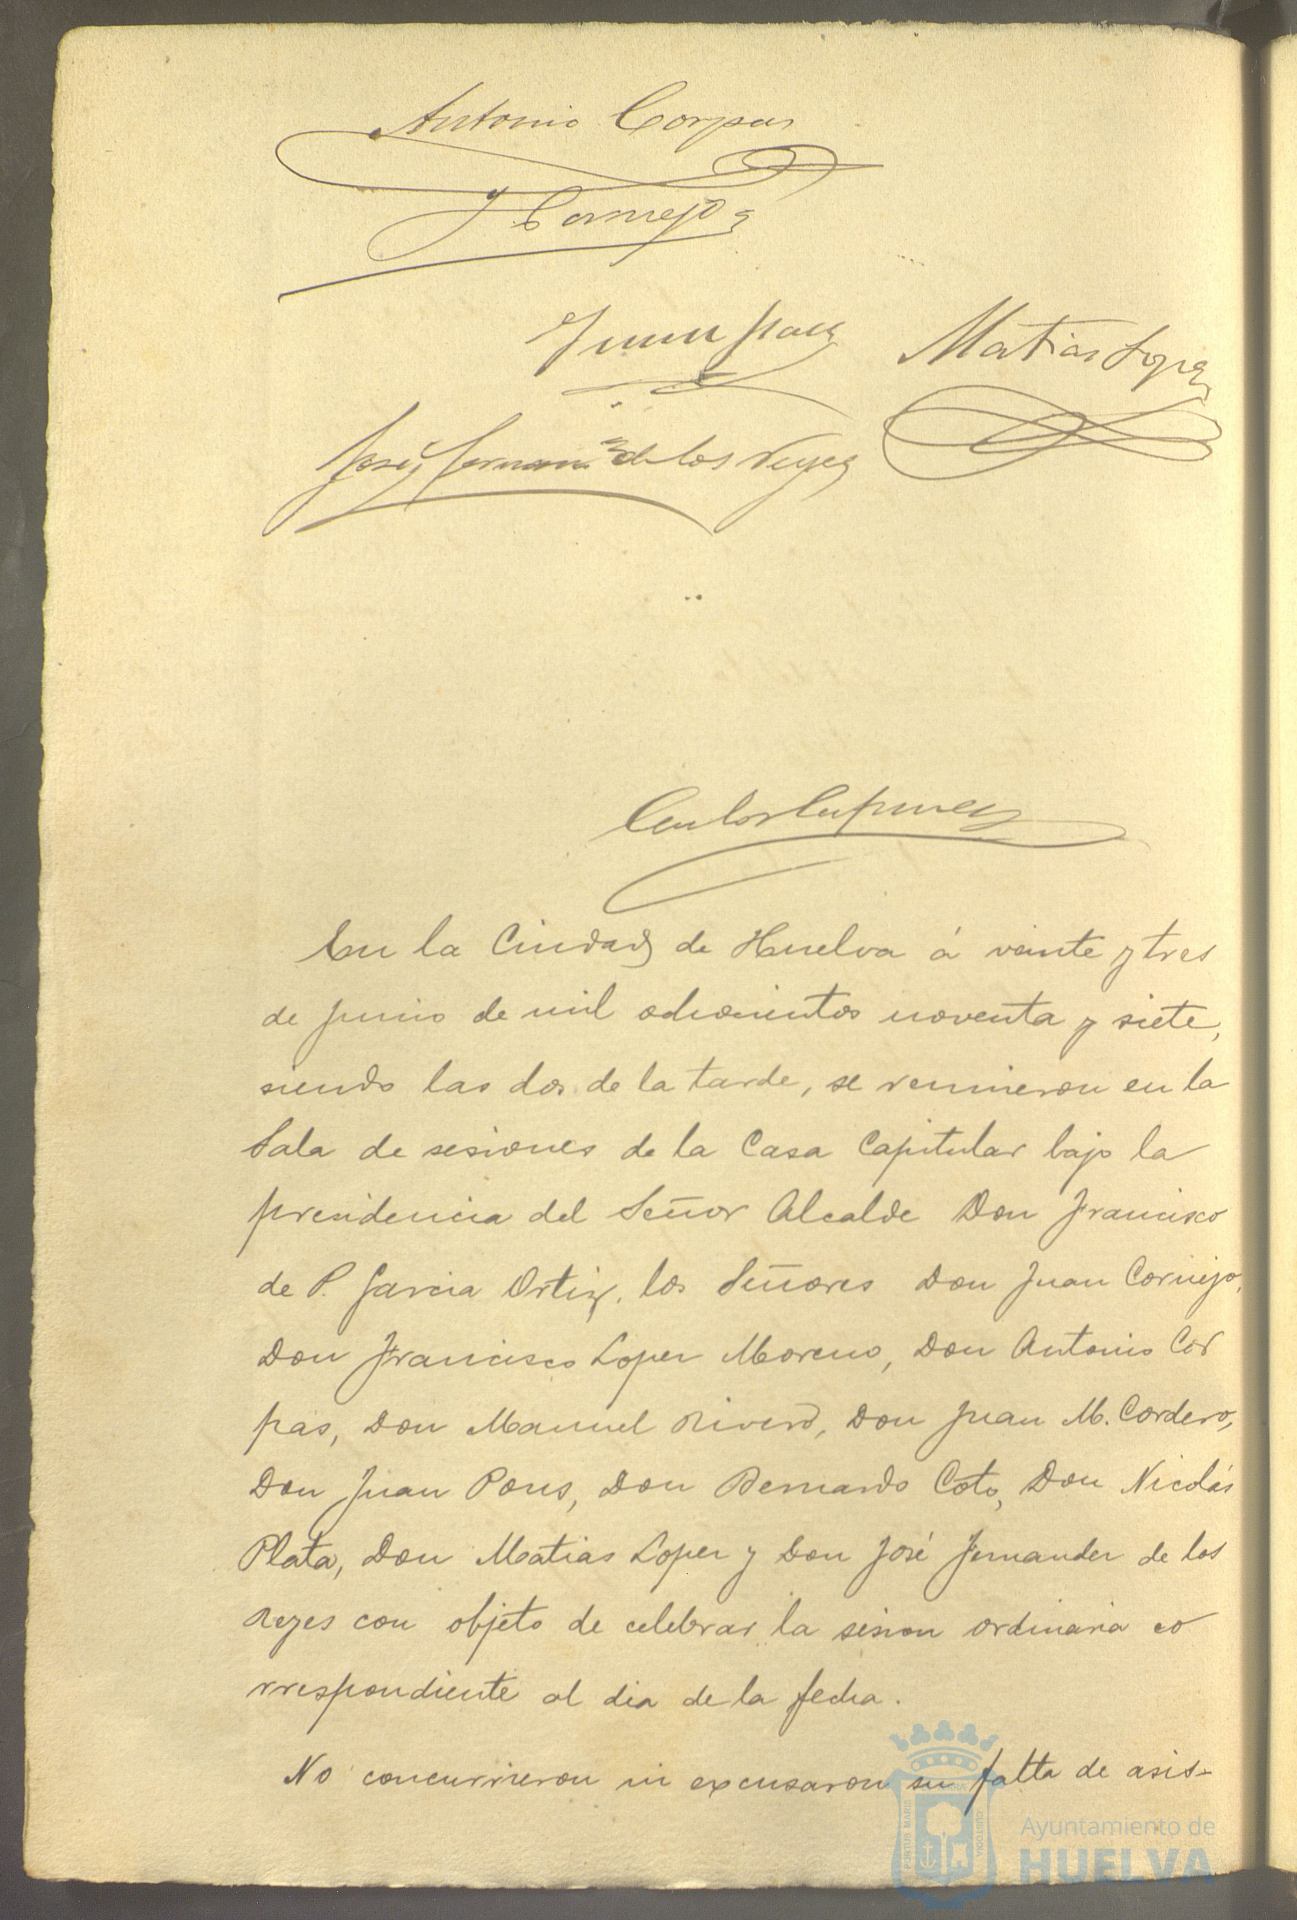 Antonio Corpas
y Cornejo
Matias Lopez
José Fernandz de los Reyes
En la Ciudad de Huelva á veinte y tres
de junio de mil ochocientos noventa y siete,
siendo las dos de la tarde, se reunieron en la
Sala de sesiones de la Casa Capitular bajo la
presidencia del Señor Alcalde Don Francisco
de P. Garcia Ortiz, los Señores Don Juan Cornejo,
Don Francisco Lopez Moreno, Don Antonio Cor
pas, Don Manuel Rivero, Don Juan M. Cordero,
Don Juan Pons, Don Bernardo Coto, Don Nicolás
Plata, Don Matias Lopez y Don José Fernandez de los
Reyes con objeto de celebrar la sesion ordinaria co
rrespondiente al dia de la fecha.
No concurrieron ni excusaron su falta de asis-
Ayuntamiento de
HUELVA